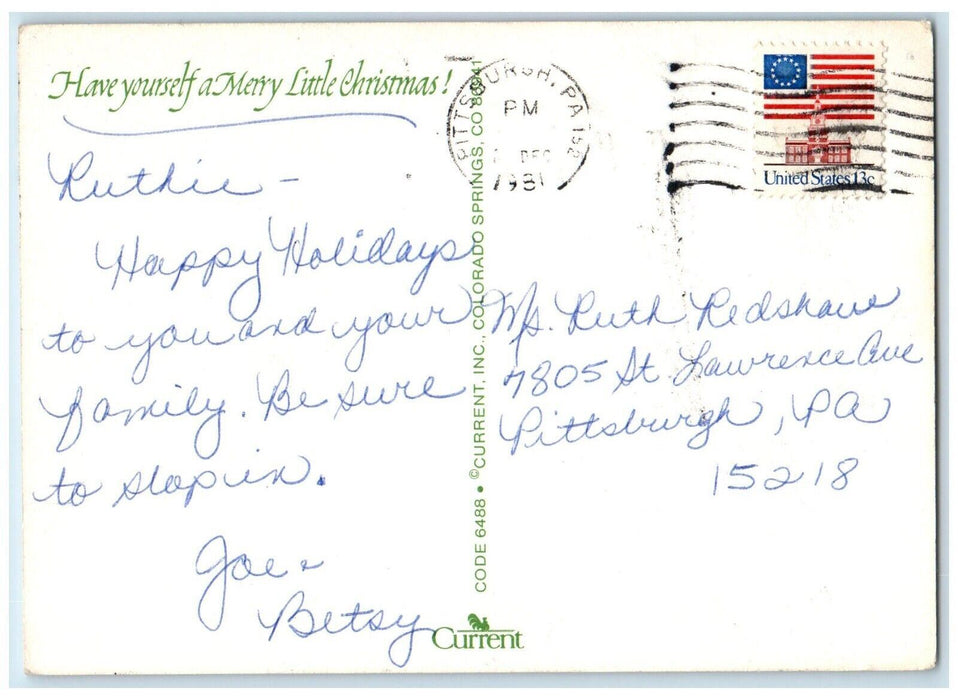 Have yourself a Merry Little Christmas!
Ruthie -
Happy Holidays
to you and your
family. Be sure
to stop in.
Joe &
Betsy
CODE 6488 • ©CURRENT, INC., COLORADO SPRINGS, CO 80941
Current
PITTSBURGH, PA 152
PM
DEC
1981
United States 13c
Ms. Ruth Redshaw
7805 St Lawrence Ave
Pittsburgh, PA
15218